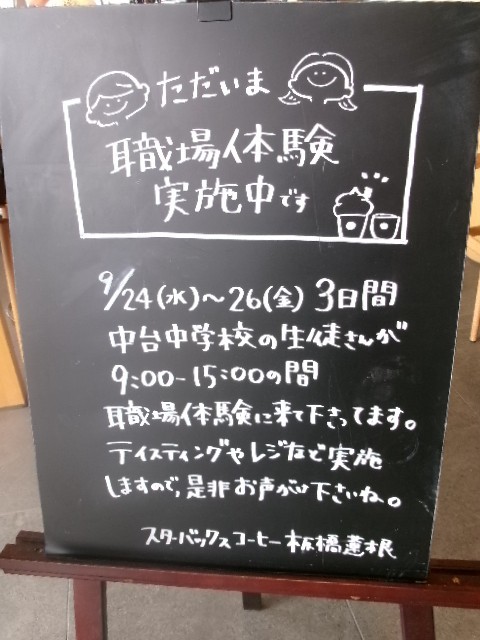 ただいま
職場体験
実施中です
9/24(水)〜26(金) 3日間
中台中学校の生徒さんが
9:00-15:00の間
職場体験に来て下さってます。
テイスティングやレジなど実施
しますので、是非お声がけ下さいね。
スターバックスコーヒー板橋蓮根